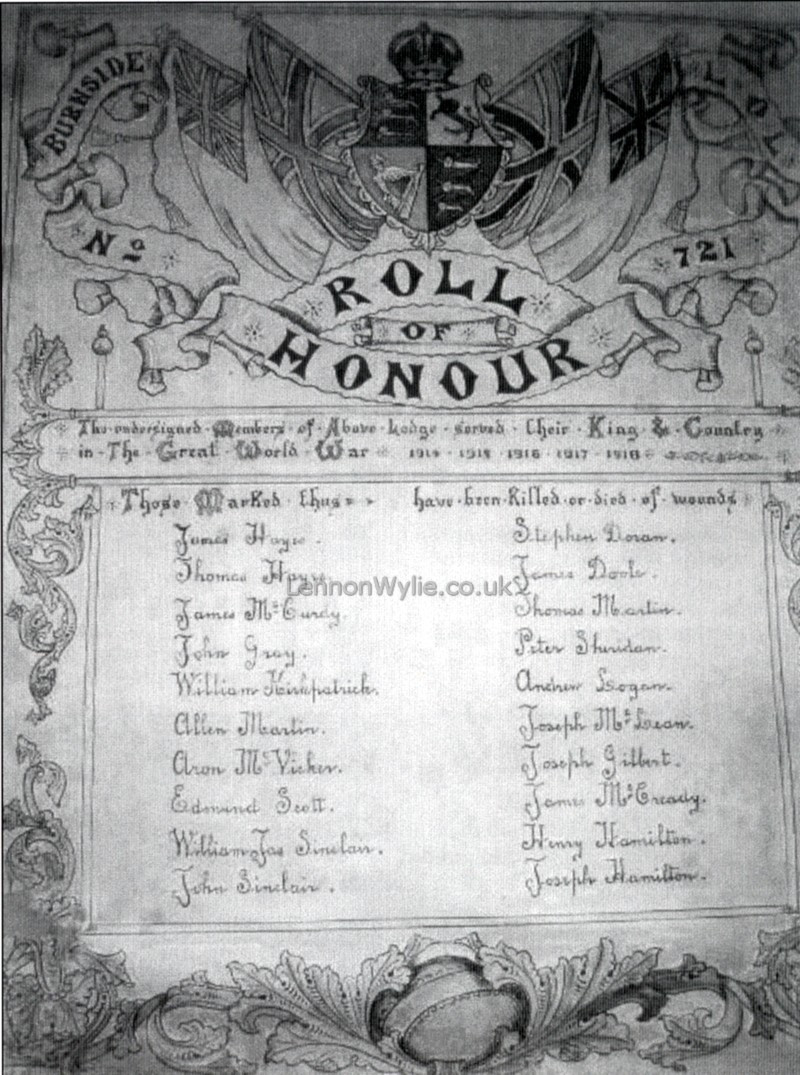 BURNSIDE
L O L
No
721
ROLL
OF
HONOUR
The undersigned Members of Above Lodge served their King & Country
in The Great World War 1914 · 1915 · 1916 · 1917 · 1918
Those Marked thus have been Killed or died of wounds
James Hayes.
Thomas Hayes
James McCurdy.
John Gray.
William Kirkpatrick.
Allen Martin.
Aron McVicker.
Edmund Scott.
William Jas Sinclair.
John Sinclair.
Stephen Doran.
James Doole.
Thomas Martin.
Peter Sheridan.
Andrew Logan.
Joseph McLean.
Joseph Gilbert.
James McCready.
Henry Hamilton.
Joseph Hamilton.
LennonWylie.co.uk